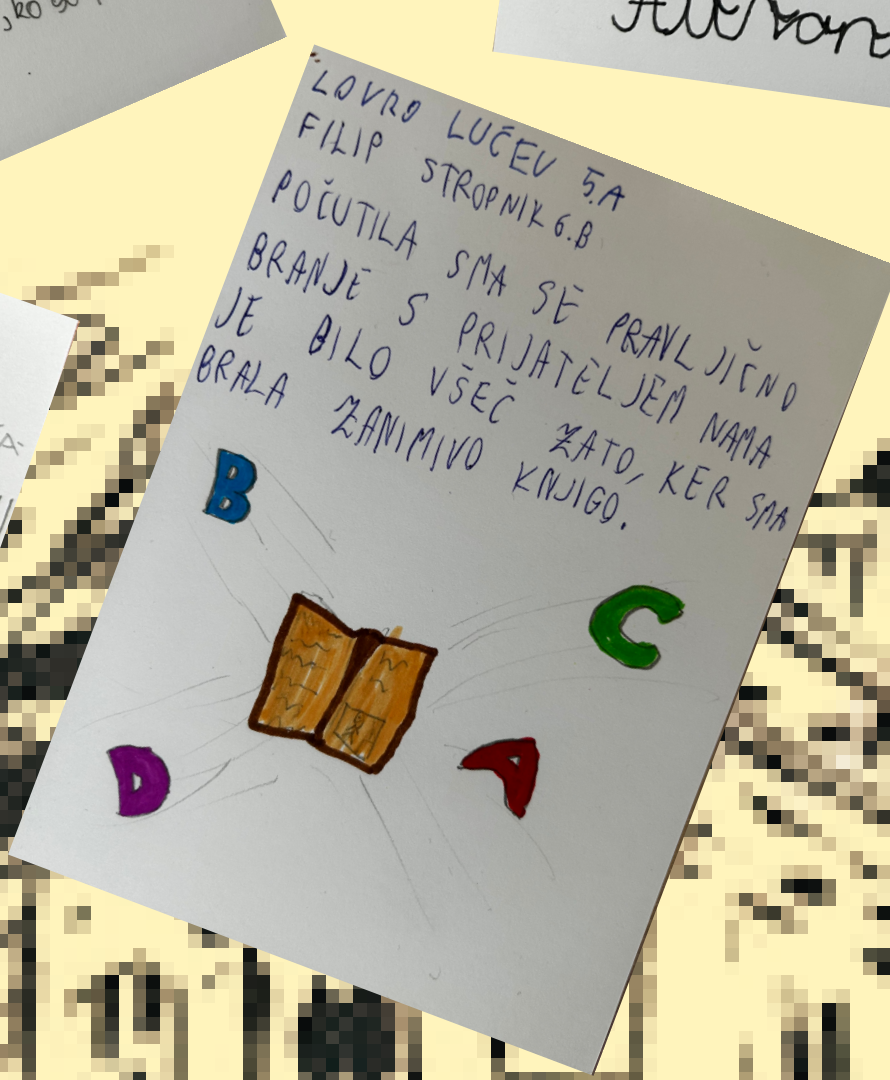 LOVRO LUČEV 5.A
FILIP STROPNIK 6.B
POČUTILA SMA SE PRAVLJIČNO
BRANJE S PRIJATELJEM NAMA
JE BILO VŠEČ ZATO, KER SMA
BRALA ZANIMIVO KNJIGO.
B
C
D
A